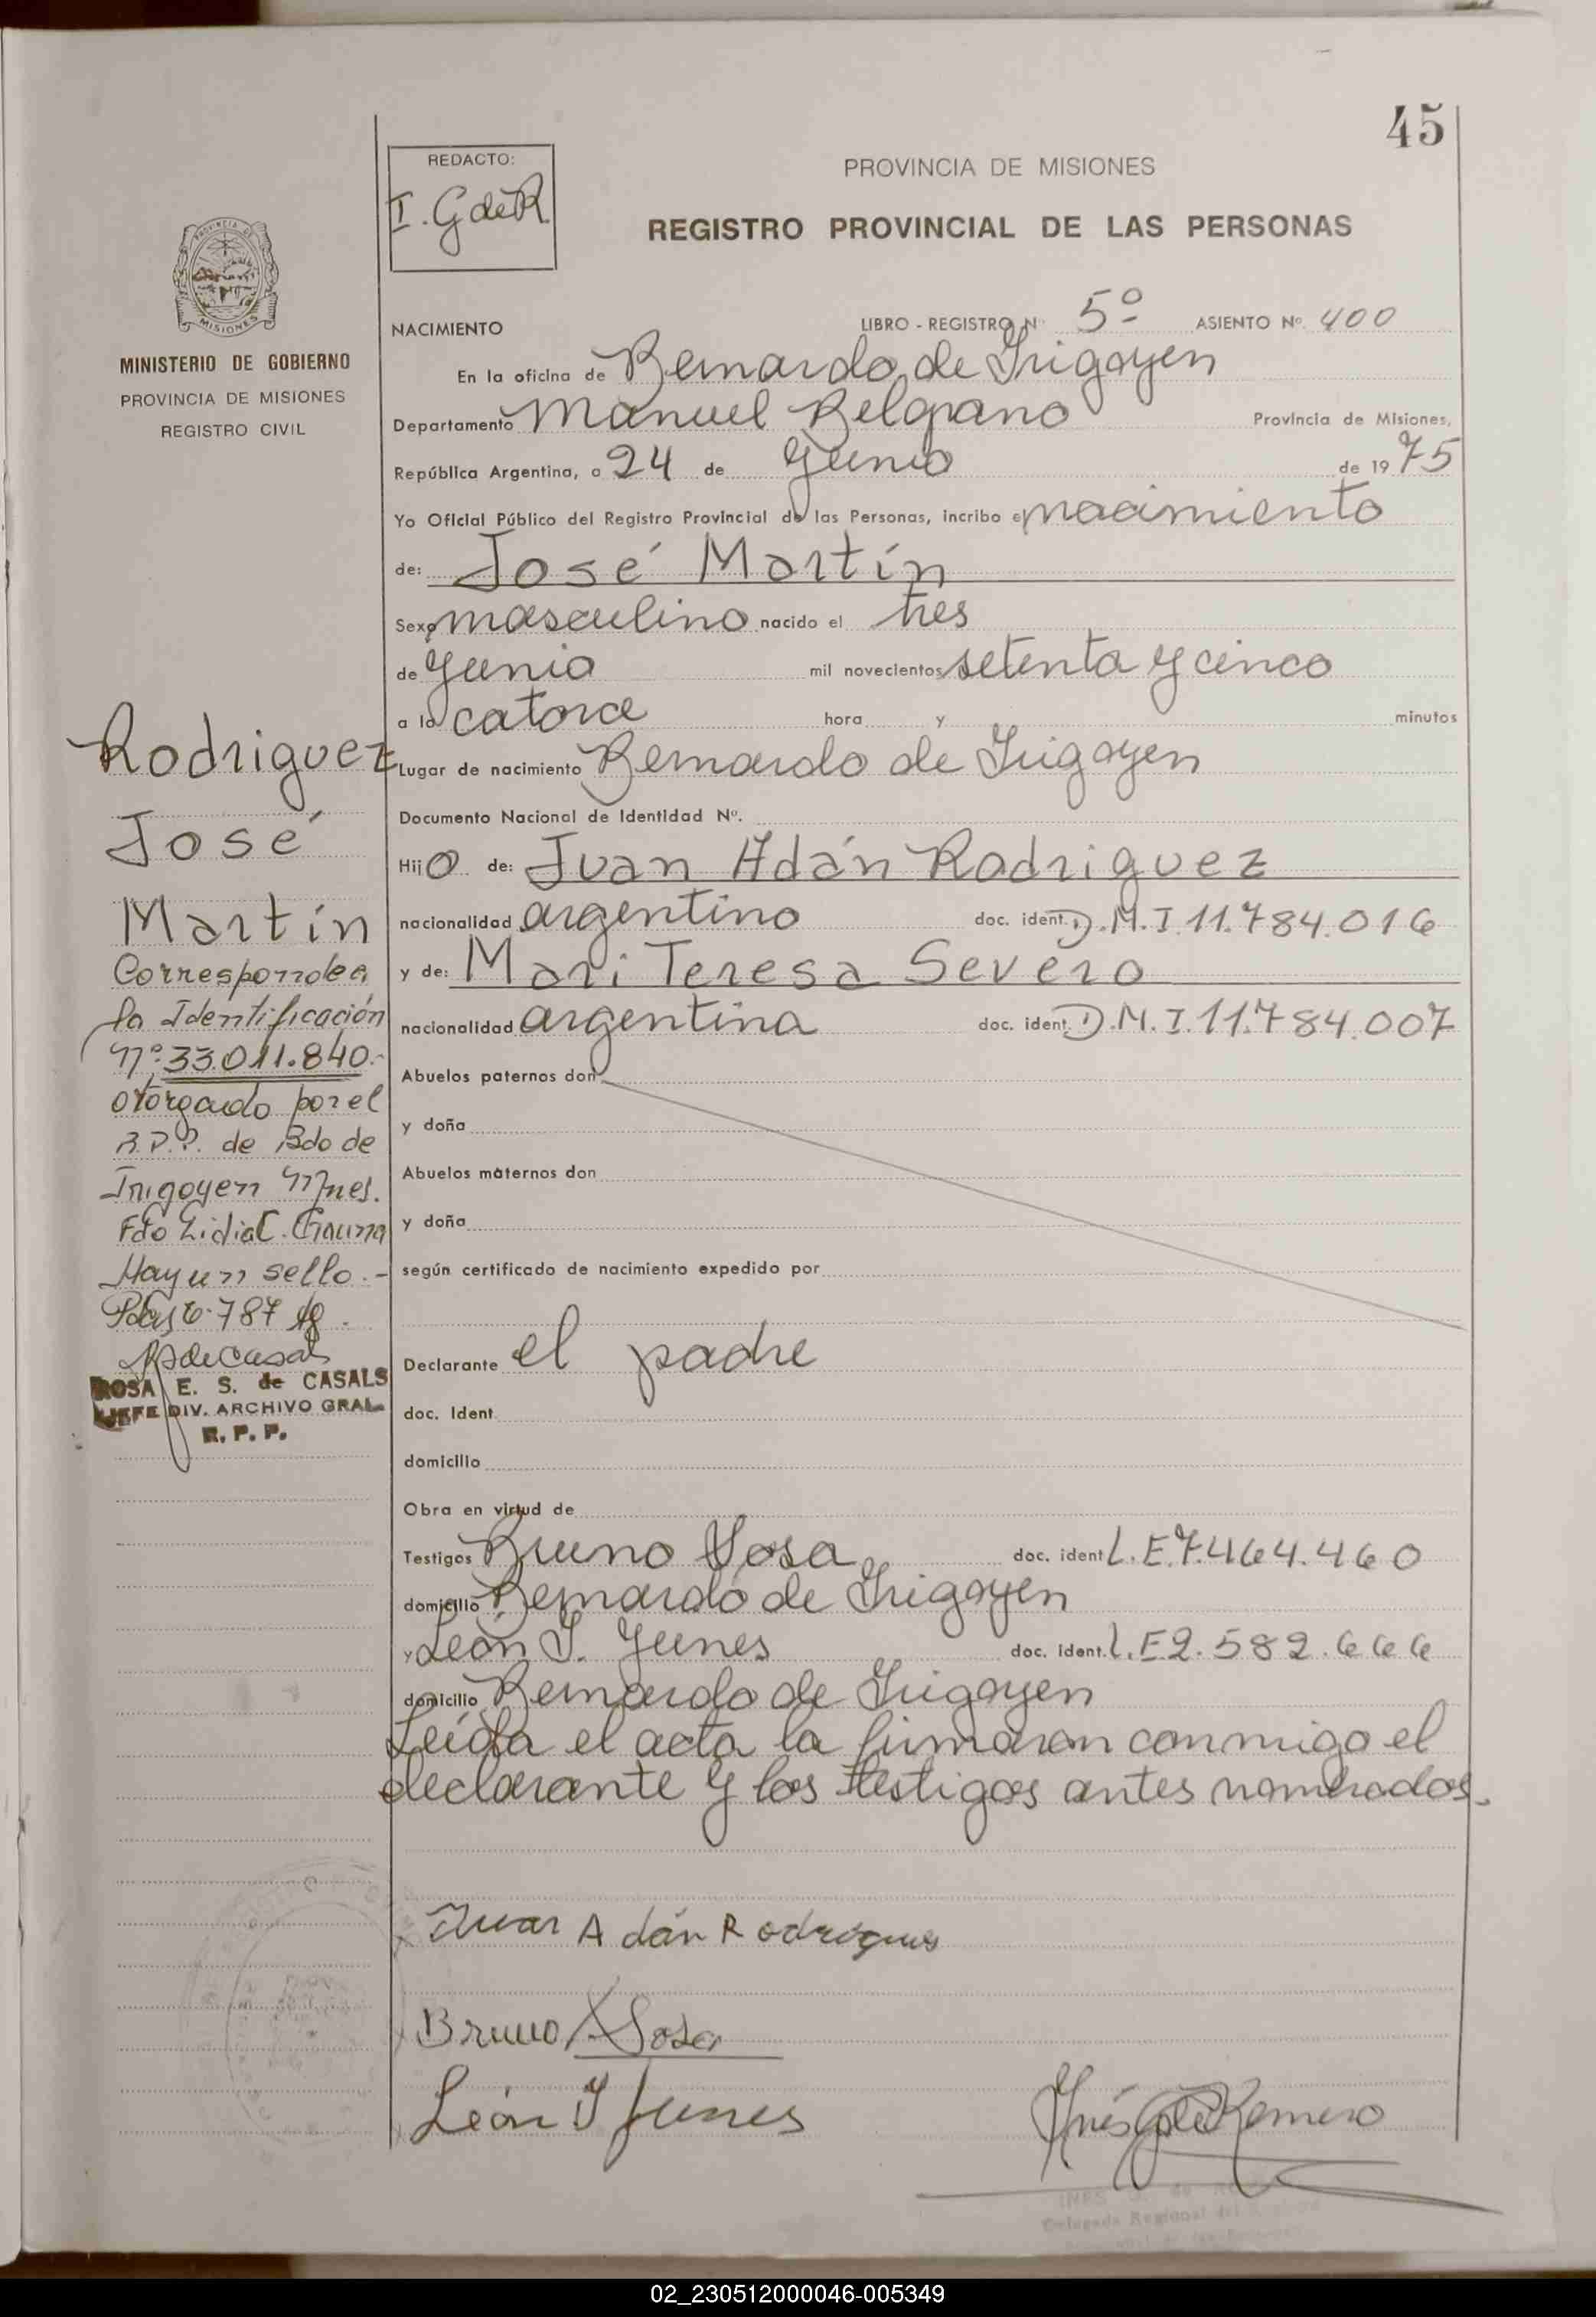 45
REDACTO:
I. G de R
PROVINCIA DE MISIONES
REGISTRO PROVINCIAL DE LAS PERSONAS
PROVINCIA DE
MISIONES
MINISTERIO DE GOBIERNO
PROVINCIA DE MISIONES
REGISTRO CIVIL
NACIMIENTO LIBRO - REGISTRO Nº 5º ASIENTO Nº 400
En la oficina de Bernardo de Irigoyen
Departamento Manuel Belgrano Provincia de Misiones,
República Argentina, a 24 de Junio de 1975
Yo Oficial Público del Registro Provincial de las Personas, incribo el nacimiento
de: José Martín
Sexo masculino nacido el tres
de Junio mil novecientos setenta y cinco
a la catorce hora y minutos
Lugar de nacimiento Bernardo de Irigoyen
Documento Nacional de Identidad Nº.
Hijo de: Juan Adán Rodriguez
nacionalidad argentino doc. ident. D.M.I 11.784.016
y de: Mari Teresa Severo
nacionalidad argentina doc. ident. D.M.I.11.784.007
Abuelos paternos don
y doña
Abuelos maternos don
y doña
según certificado de nacimiento expedido por
Declarante el padre
doc. Ident.
domicilio
Obra en virtud de
Testigos Bruno Sosa doc. ident L.E.7.464.460
domicilio Bernardo de Irigoyen
y León I. Junes doc. ident. L.E 2.582.666
domicilio Bernardo de Irigoyen
Leída el acta la firmaron conmigo el
declarante y los testigos antes nombrados.
Rodriguez
José
Martín
Corresponde a
la Identificación
Nº 33.011.840.-
otorgado por el
R.P.P. de Bdo de
Irigoyen Mnes.
Fdo Lidia C. Gauna
Hay un sello.-
Pdas 6.787
R de Casals
ROSA E. S. de CASALS
JEFE DIV. ARCHIVO GRAL.
R. P. P.
Juan Adán Rodrigues
Bruno Sosa
León I Junes
Inés G de Romero
INES G. de
Delegada Regional del
02_230512000046-005349